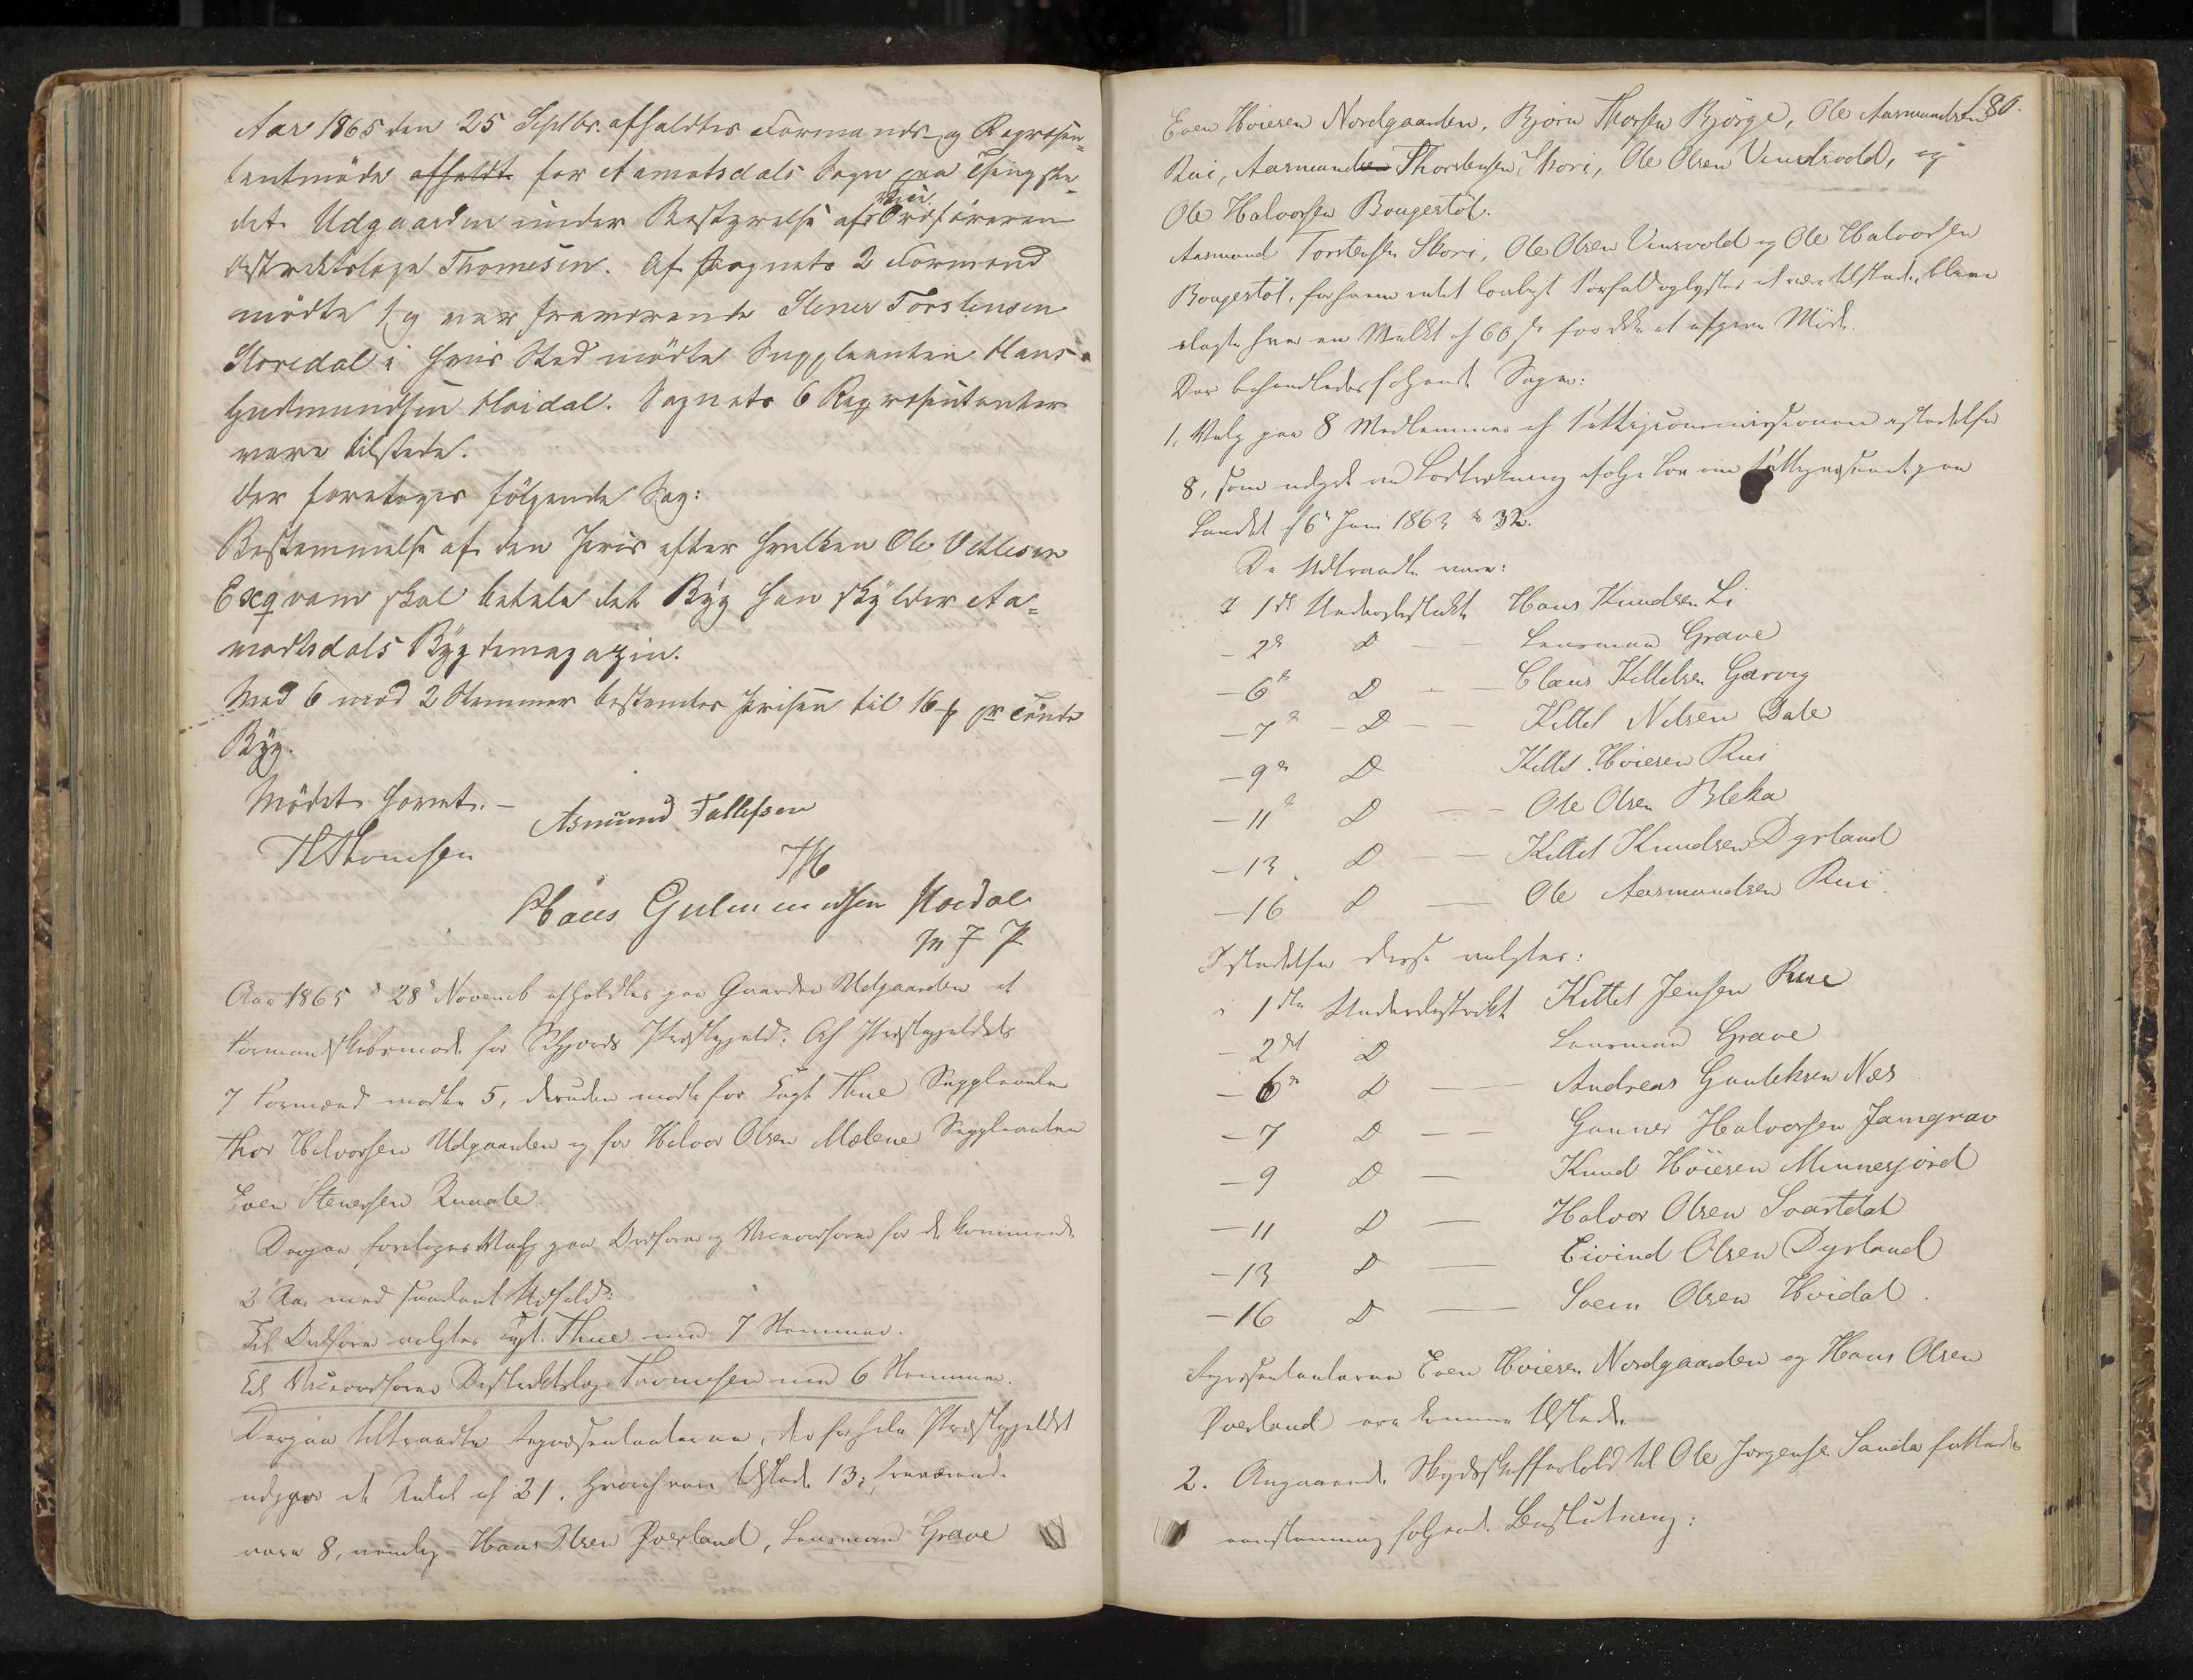 Aar 1865 den 25 Septbr. afholdtes Formands- og Repræsen-
tantmöde afholdt for Aamotsdals Sogn paa Thingste-
det Udgaarden under Bestyrelse af Vice Ordföreren
Distriktslæge Thomesen. Af Sognets 2 Formænd
mödte 1, og var fraværende Stener Torstensen
Storedal i hvis Sted mödte Suppleanten Hans
Gudmundsen Hoidal. Sognets 6 Repræsentanter
vare tilstede.
Der foretoges fölgende Sag:
Bestemmelse af den Priis efter hvilken Ole Vetlesen
Exqvam skal betale det Byg han skylder Aa-
modtsdals Bygdemagazin.
Med 6 mod 2 Stemmer bestemtes Prisen til 16 ß pr Tönde
Byg.
Mödet hævet. –
Asmund Tallefsen
Th Thomesen
Hans Gulmundsen Hoidal
M F P
Aar 1865 d 28d Novemb afholdtes paa Gaarden Udgaarden et
Formandskabsmöde for Seljords Præstegjeld. Af Præstegjeldets
7 Formænd mödte 5, desuden mödte for Capt Thue Suppleanten
Thor Halvorsen Udgaarden og for Halvor Olsen Mælene Suppleanten
Even Stenersen Qvaale.
Derpaa foretoges Valg paa Ordförer og Viceordförer for de kommende
2 Aar med saadant Udfald:
Til Ordförer valgtes Capt. Thue med 7 Stemmer.
Til Viceordförer Distriktslæge Thomesen med 6 Stemmer.
Derpaa tiltraadte Repræsentanterne, der for hele Præstegjeldet
udgjör et Antal af 21, hvoraf vare tilstede 13; fraværende
vare 8, nemlig Hans Olsen Överland, Lensmand Grave
180.
Even Hoiesen Nordgaarden, Björn Thorsen Björge, Ole Aasmundsen
Rui, Aasmund Thorstensen Skori, Ole Olsen Vindsvold, og
Ole Halvorsen Bougestöl.
Aasmund Torstensen Skori, Ole Olsen Vinsvold og Ole Halvorsen
Bougestöl, for hvem intet lovligt Forfald oplystes at være tilstede, bleve
ilagte hver en Mulkt af 60 ß for ikke at afgive Möde.
Der behandledes fölgende Sager:
1, Valg paa 8 Medlemmer af Fattigcommissionen istedetfor
8, som udgik ved Lodtrekning ifölge Lov om Fattigvæsenet paa
Landet af 6 Juni 1863 § 32.
De Udtraadte vare:
I 1st Underdistrikt Hans Knudsen Li
– 2d D – – Lensmand Grave
– 6t D – – Claus Kittelsen Garvig
– 7d – D – – Kittil Nilsen Dale
– 9de D Kittil Hoiesen Rui
– 11t D – – Ole Olsen Bleka
– 13. D – – Kittil Knudsen Dyrland
– 16 D – Ole Aasmundsen Rui.
Istedetfor disse valgtes:
i 1ste Underdistrikt Kittil Jensen Rue
– 2det D Lensmand Grave
– 6te D – Andreas Gunleksen Næs
– 7 D – – Gunner Halvorsen Jamgrav
– 9 D – Knud Höiesen Minnesjord
– 11 D – Halvor Olsen Svartdal
– 13 D – Eivind Olsen Dyrland
– 16 D – Svein Olsen Hvidal.
Repræsentanterne Even Hoiesen Nordgaarden og Hans Olsen
Överland vare komne tilstede.
2. Angaaende Skydsskafferhold til Ole Jorgensen Sanda fattedes
eenstemmig fölgende Beslutning: